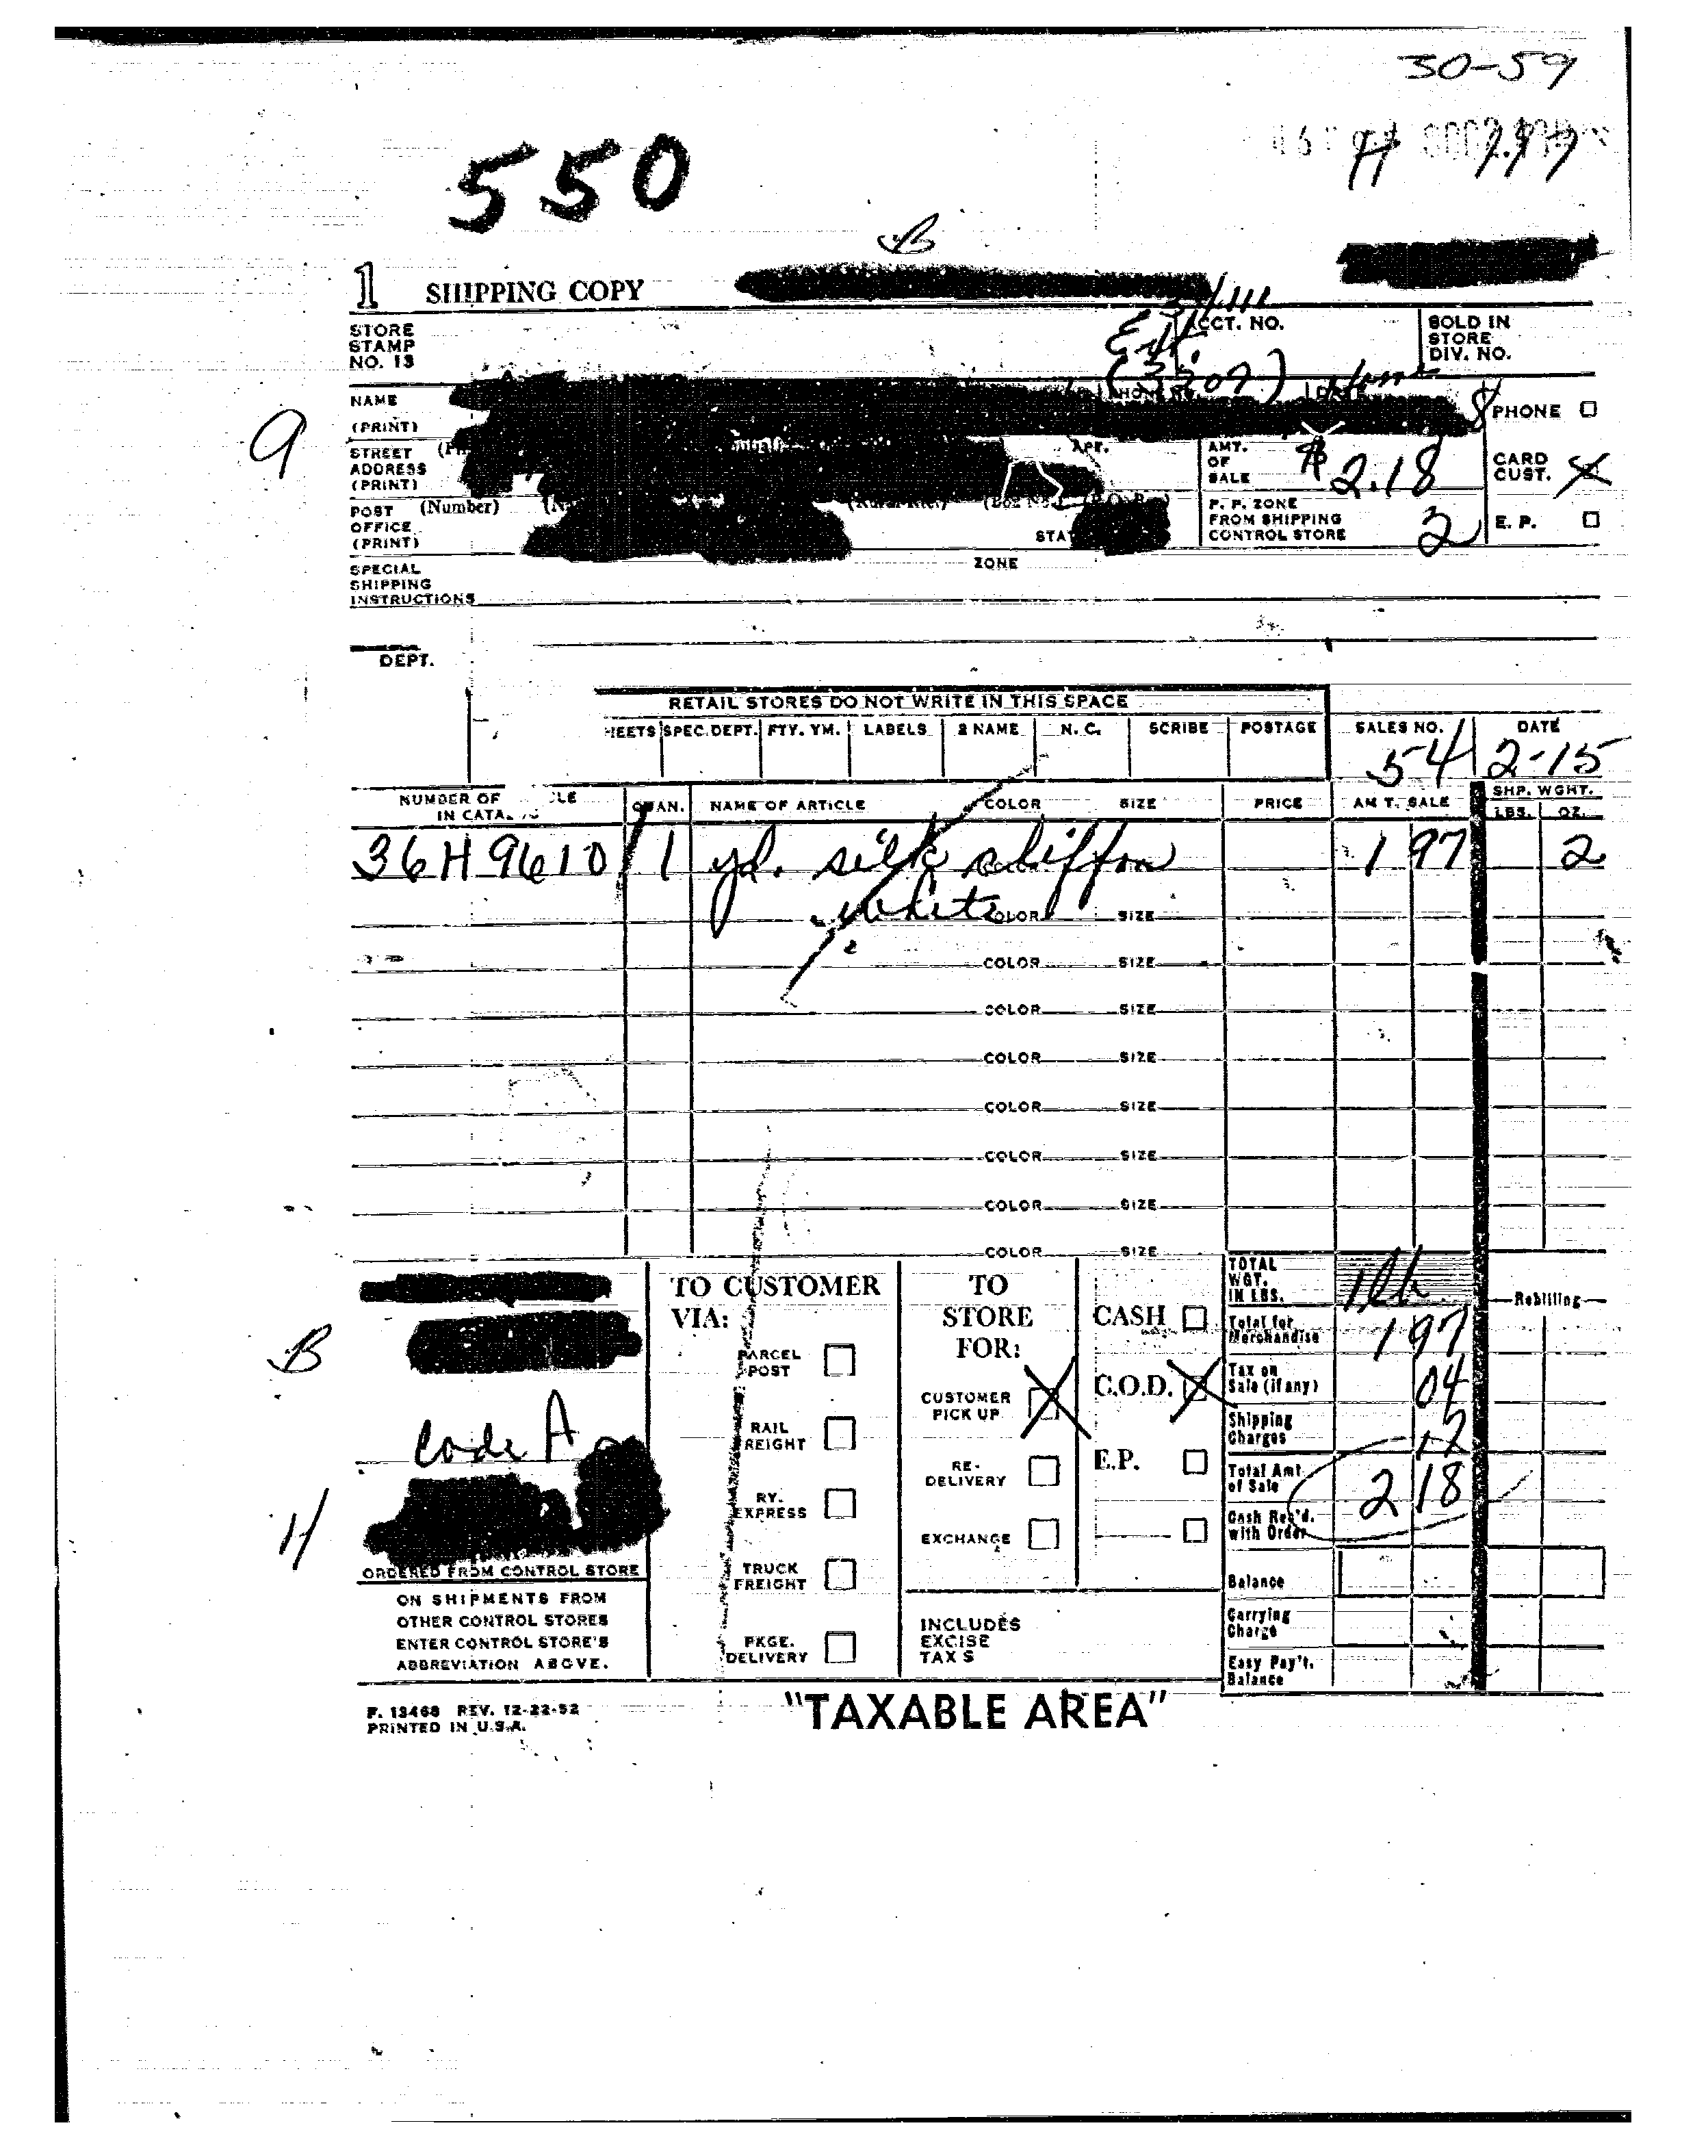 30-59
550
H
B
1 SHIPPING COPY
STORE
STAMP
NO. 13
ACCT. NO.
SOLD IN
STORE
DIV. NO.
(3207)
NAME
(PRINT)
PHONE
9
STREET
ADDRESS
(PRINT)
APT.
AMT.
OF
SALE
$ 2.18
CARD
CUST. X
POST
OFFICE
(PRINT)
(Number)
STA
P. P. ZONE
FROM SHIPPING
CONTROL STORE
2
E. P.
ZONE
SPECIAL
SHIPPING
INSTRUCTIONS
DEPT.
RETAIL STORES DO NOT WRITE IN THIS SPACE
HEETS SPEC. DEPT. FTY. YM. LABELS 2 NAME N. C. SCRIBE POSTAGE SALES NO. DATE
54 2-15
NUMBER OF
IN CATA
QUAN. NAME OF ARTICLE COLOR SIZE PRICE AMT. SALE SHP. WGHT.
LBS. OZ.
36H9610 1 yd. silk chiffon 1 97 2
white COLOR SIZE
COLOR SIZE
COLOR SIZE
COLOR SIZE
COLOR SIZE
COLOR SIZE
COLOR SIZE
COLOR SIZE
B
Code A
H
ORDERED FROM CONTROL STORE
ON SHIPMENTS FROM
OTHER CONTROL STORES
ENTER CONTROL STORE'S
ABBREVIATION ABOVE.
TO CUSTOMER
VIA:
PARCEL
POST
RAIL
FREIGHT
RY.
EXPRESS
TRUCK
FREIGHT
PKGE.
DELIVERY
TO
STORE
FOR:
CUSTOMER
PICK UP X
RE-
DELIVERY
EXCHANGE
INCLUDES
EXCISE
TAX S
CASH
C.O.D. X
E.P.
TOTAL
WGT.
IN LBS.
Rebilling
Total for
Merchandise 1 97
Tax on
Sale (if any) 04
Shipping
Charges 17
Total Amt.
of Sale 2 18
Cash Rec'd.
with Order
Balance
Carrying
Charge
Easy Pay't.
Balance
F. 13468 REV. 12-22-52
PRINTED IN U.S.A.
"TAXABLE AREA"